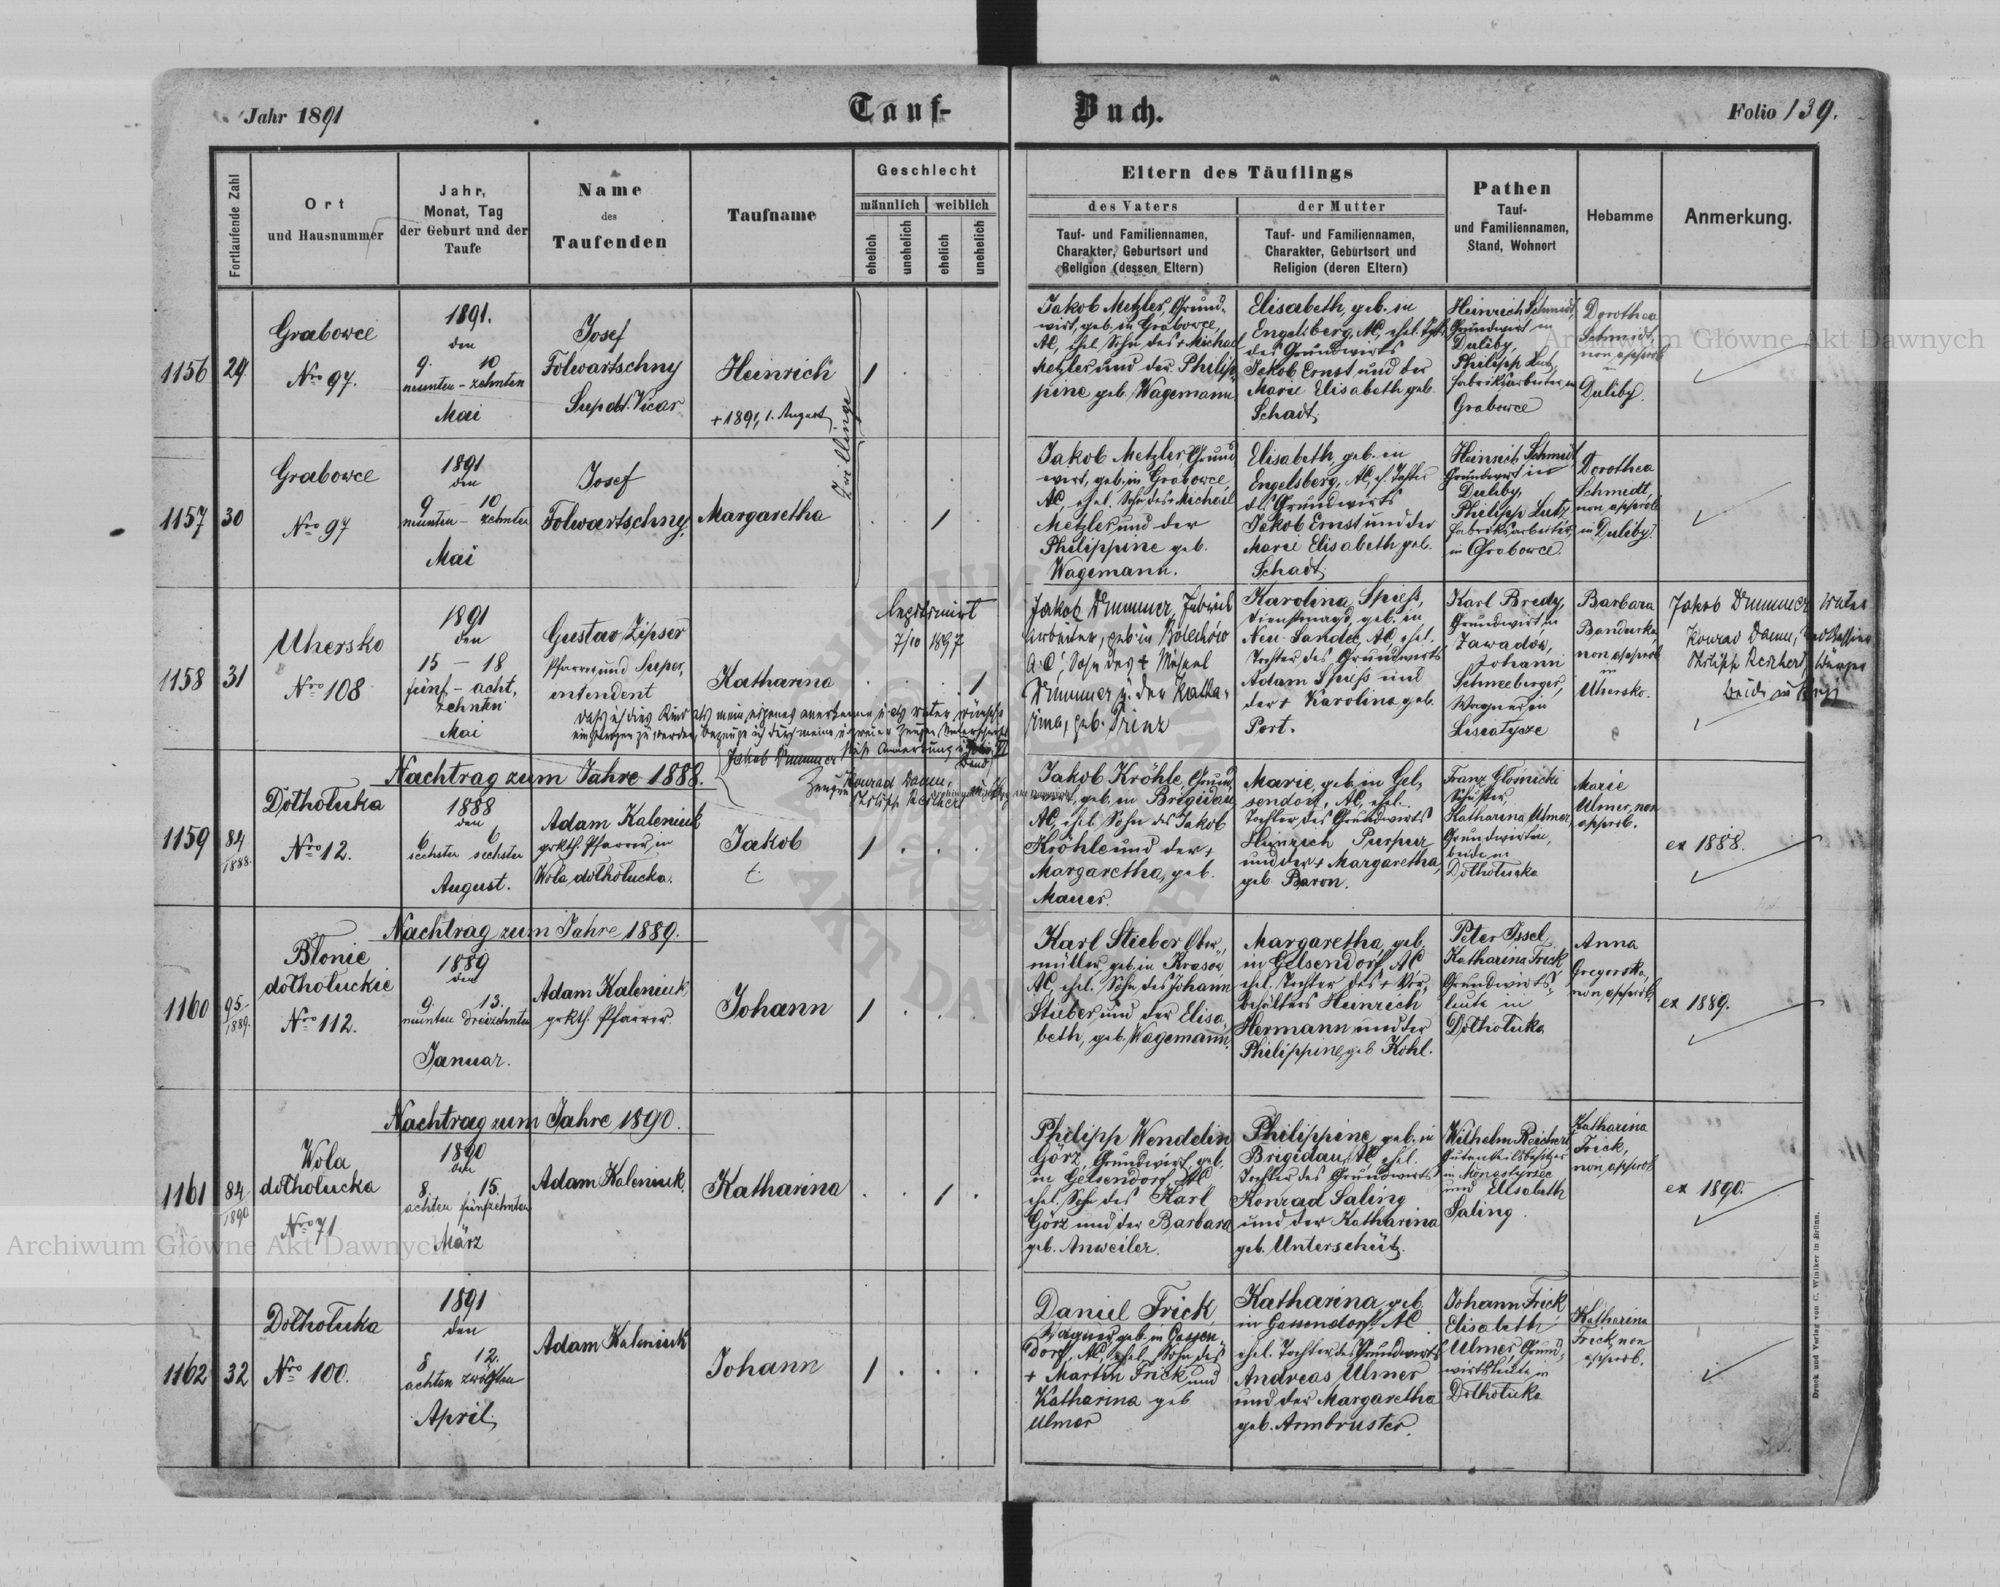 Jahr 1891
Tauf-
Buch.
Folio 139.
Fortlaufende Zahl
Ort
und Hausnummer
Jahr,
Monat, Tag
der Geburt und der
Taufe
Name
des
Taufenden
Taufname
Geschlecht
männlich
weiblich
ehelich
unehelich
ehelich
unehelich
Eltern des Täuflings
des Vaters
Tauf- und Familiennamen,
Charakter, Geburtsort und
Religion (dessen Eltern)
der Mutter
Tauf- und Familiennamen,
Charakter, Geburtsort und
Religion (deren Eltern)
Pathen
Tauf-
und Familiennamen,
Stand, Wohnort
Hebamme
Anmerkung.
1156
29
Grabowce
Nro 97.
1891.
den
9. 10
neunten - zehnten
Mai
Josef
Folwartschny
Supdt. Vicar
Heinrich
+ 1891, 1. August
1
Zwillinge
Jakob Metzler, Grund-
wirt, geb. in Grabowce,
AC, ehel. Sohn des + Michael
Metzler und der Philip-
pine geb. Wagemann
Elisabeth, geb. in
Engelsberg, AC, ehel. Tocht.
des Grundwirts
Jakob Ernst und der
Marie Elisabeth geb.
Schadt.
Heinrich Schmidt,
Grundwirt in
Duliby,
Philipp Lutz,
Fabriksarbeiter in
Grabowce
Dorothea
Schmidt,
non approb.
in
Duliby.
1157
30
Grabowce
Nro 97
1891
den
9 - 10
neunten - zehnten
Mai
Josef
Folwartschny,
Margaretha
1
Jakob Metzler Grund
wirt, geb. in Grabowce,
AC, ehel. Sohn des + Michael
Metzler, und der
Philippine geb.
Wagemann.
Elisabeth, geb. in
Engelsberg, AC, e. Tochter
des Grundwirts
Jakob Ernst und der
Marie Elisabeth geb.
Schadt.
Heinrich Schmidt,
Grundwirt in
Duliby,
Philipp Lutz,
Fabriksarbeiter,
in Grabowce.
Dorothea
Schmidt,
non approb.
in Duliby.
1158
31
Uhersko
Nro 108
1891
den
15 - 18
fünf - acht,
zehnten
Mai
Gustav Zipser
Pfarrer und Super,
intendent
Katharina
legitimirt
7/10 1897
1
Jakob Dummer, Fabriks
arbeiter, geb in Bolechów
A.C., Sohn des +
Dummer u. der Katha-
rina, geb. Prinz
Karolina Spieß,
Dienstmagd, geb. in
Neu-Sandec, AC, ehel.
Tochter des Grundwirts
Adam Spieß und
der + Karolina geb.
Port.
Karl Bredy,
Grundwirt in
Zawadów,
Johann
Schneeberger,
Wagner in
Lisiatycze
Barbara
Bandurka,
non approb.
in
Uhersko.
Jakob Dummer Vater
Konrad Damm,
Philipp Reichert,
beide in Stryj
Daß ich dies Kind als mein eigenes anerkenne u. als Vater wünsche
eingetragen zu werden, bezeuge ich durch meine u. zweier Zeugen Unterschrift
Jakob Dummer
Zeugen Konrad Damm,
Philipp Reichert
Nachtrag zum Jahre 1888.
1159
84
1888.
Dołhołuka
Nro 12.
1888
den
6 6
sechsten sechsten
August.
Adam Kaleniuk
grkth. Pfarrer, in
Wola dołhołucka.
Jakob
1
Jakob Kröhle, Grund,
wirt, geb. in Brigidau,
AC, ehel. Sohn des Jakob
Kröhle und der +
Margaretha, geb.
Mauer.
Marie, geb. in Gel,
sendorf, AC, ehel.
Tochter des Grundwirts
Heinrich Purpur
und der + Margaretha,
geb. Baron.
Franz Głośnicki
Schuster,
Katharina Ulmer,
Grundwirtin,
beide in
Dołhołuka
Marie
Ulmer, non
approb.
ex 1888.
Nachtrag zum Jahre 1889.
1160
95
1889.
Błonie
dołhołuckie
Nro 112.
1889
den
9. 13.
neunten dreizehnten
Januar.
Adam Kaleniuk
grkth. Pfarrer
Johann
1
Karl Stieber Ober,
müller, geb. in Krasów
AC, ehel. Sohn des Johann
Stieber, und der Elisa,
beth, geb. Wagemann.
Margaretha, geb.
in Gelsendorf, AC
ehel. Tochter des + Vor,
behälters Heinrich
Hermann und der
Philippine, geb Kohl.
Peter Issel
Katharina Frick,
Grundwirts,
leute in
Dołhołuka
Anna
Gregorska,
non approb.
ex 1889.
Nachtrag zum Jahre 1890.
1161
84
1890
Wola
dołholucka
Nro 71
1890
den
8 15.
achten fünfzehnten
März
Adam Kaleniuk.
Katharina
1
Philipp Wendelin
Görz, Grundwirt, geb.
in Gelsendorf, AC
ehel. Sohn des Karl
Görz und der Barbara
geb. Anweiler.
Philippine, geb. in
Brigidau, AC ehel.
Tochter des Grundwirts
Konrad Saling
und der Katharina
geb. Unterschütz.
Wilhelm Reichert,
Gutantheilsbesitzer
in Monastyrzec
und Elisabeth
Saling.
Katharina
Frick,
non approb.
ex 1890.
1162
32
Dołhołuka
Nro 100.
1891
den
8 12.
achten zwölften
April.
Adam Kaleniuk
Johann
1
Daniel Frick,
Wagner geb. in Gassen,
dorf, AC, ehel. Sohn des
+ Martin Frick und
Katharina geb
Ulmer
Katharina, geb.
in Gassendorf, AC
ehel. Tochter des Grundwirts
Andreas Ulmer
und der Margaretha
geb. Armbruster.
Johann Frick
Elisabeth
Ulmer, Grund,
wirtsleute in
Dołhołuka
Katharina
Frick, non
approb.
Druck und Verlag von C. Winiker in Brünn.
Archiwum Główne Akt Dawnych
Archiwum Główne Akt Dawnych
ARCHIWUM GŁÓWNE AKT DAWNYCH